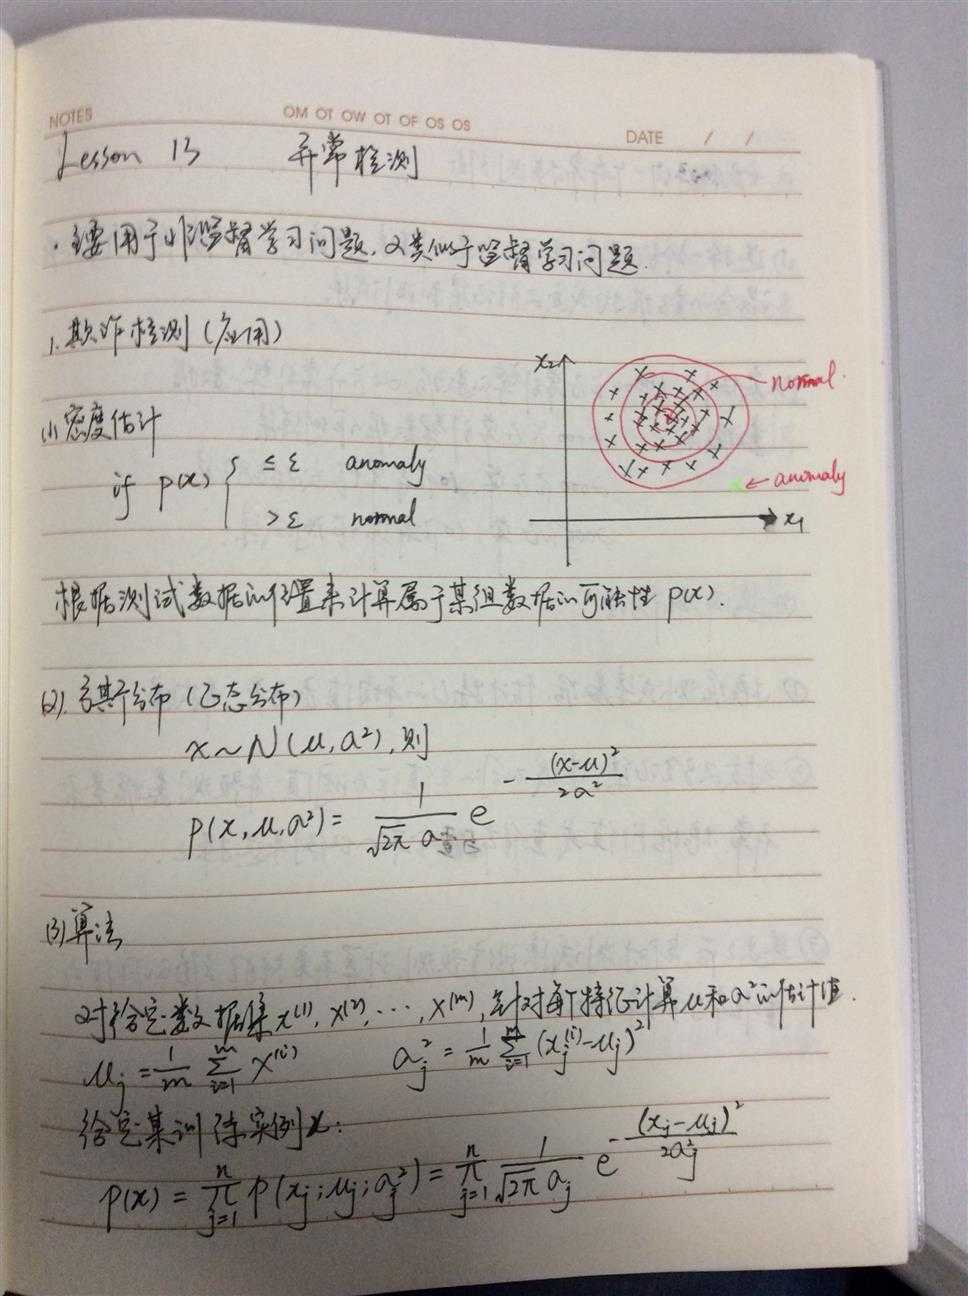 NOTES
OM OT OW OT OF OS OS
DATE / /
Lesson 13 异常检测
· 主要用于非监督学习问题,又类似于监督学习问题.
1. 欺诈检测(应用)
(1) 密度估计
if p(x) { ≤ε anomaly
>ε normal
x₂
normal.
← anomaly
x₁
根据测试数据的位置来计算属于某组数据的可能性 p(x).
(2). 高斯分布(正态分布)
x ~ N(μ, a²), 则
p(x, μ, a²) = 1/(√2π a) e^(-(x-μ)²/2a²)
(3) 算法
对给定数据集 x⁽¹⁾, x⁽²⁾, ···, x⁽ᵐ⁾, 针对每个特征计算 μ 和 a² 的估计值.
μⱼ = 1/m Σᵢ₌₁ᵐ x⁽ⁱ⁾ aⱼ² = 1/m Σᵢ₌₁ᵐ (xⱼ⁽ⁱ⁾-μⱼ)²
给定某训练实例 x:
p(x) = πⱼ₌₁ⁿ p(xⱼ; μⱼ; aⱼ²) = πⱼ₌₁ⁿ 1/(√2π aⱼ) e^(-(xⱼ-μⱼ)²/2aⱼ²)